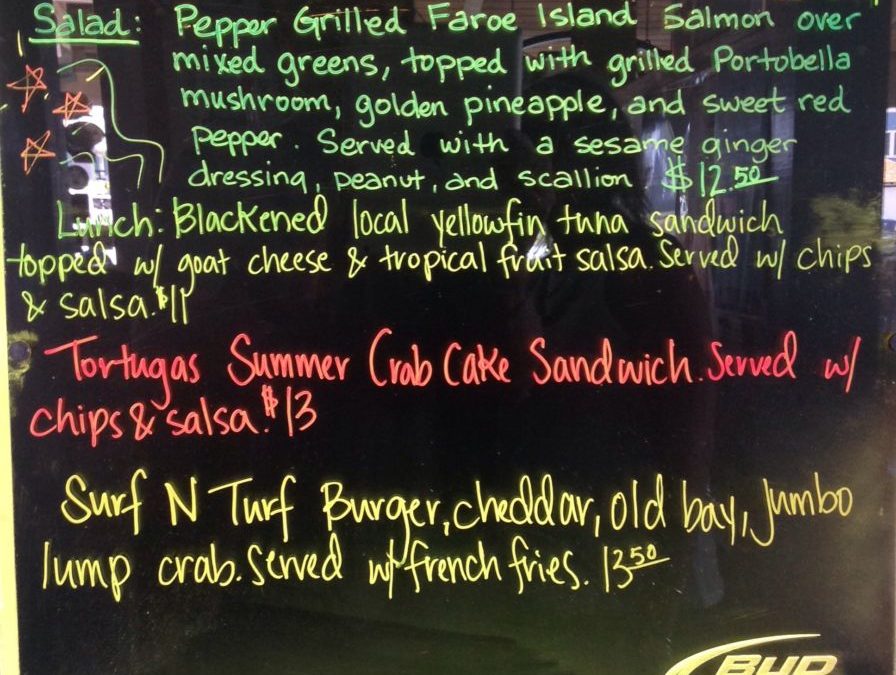 Salad: Pepper Grilled Faroe Island Salmon over
mixed greens, topped with grilled Portobella
mushroom, golden pineapple, and sweet red
pepper. Served with a sesame ginger
dressing, peanut, and scallion $12.50
Lunch: Blackened local yellowfin tuna sandwich
topped w/ goat cheese & tropical fruit salsa. Served w/ chips
& salsa. $11
Tortugas Summer Crab Cake Sandwich. Served w/
chips & salsa. $13
Surf N Turf Burger, cheddar, old bay, jumbo
lump crab. Served w/ french fries. 13.50
BUD